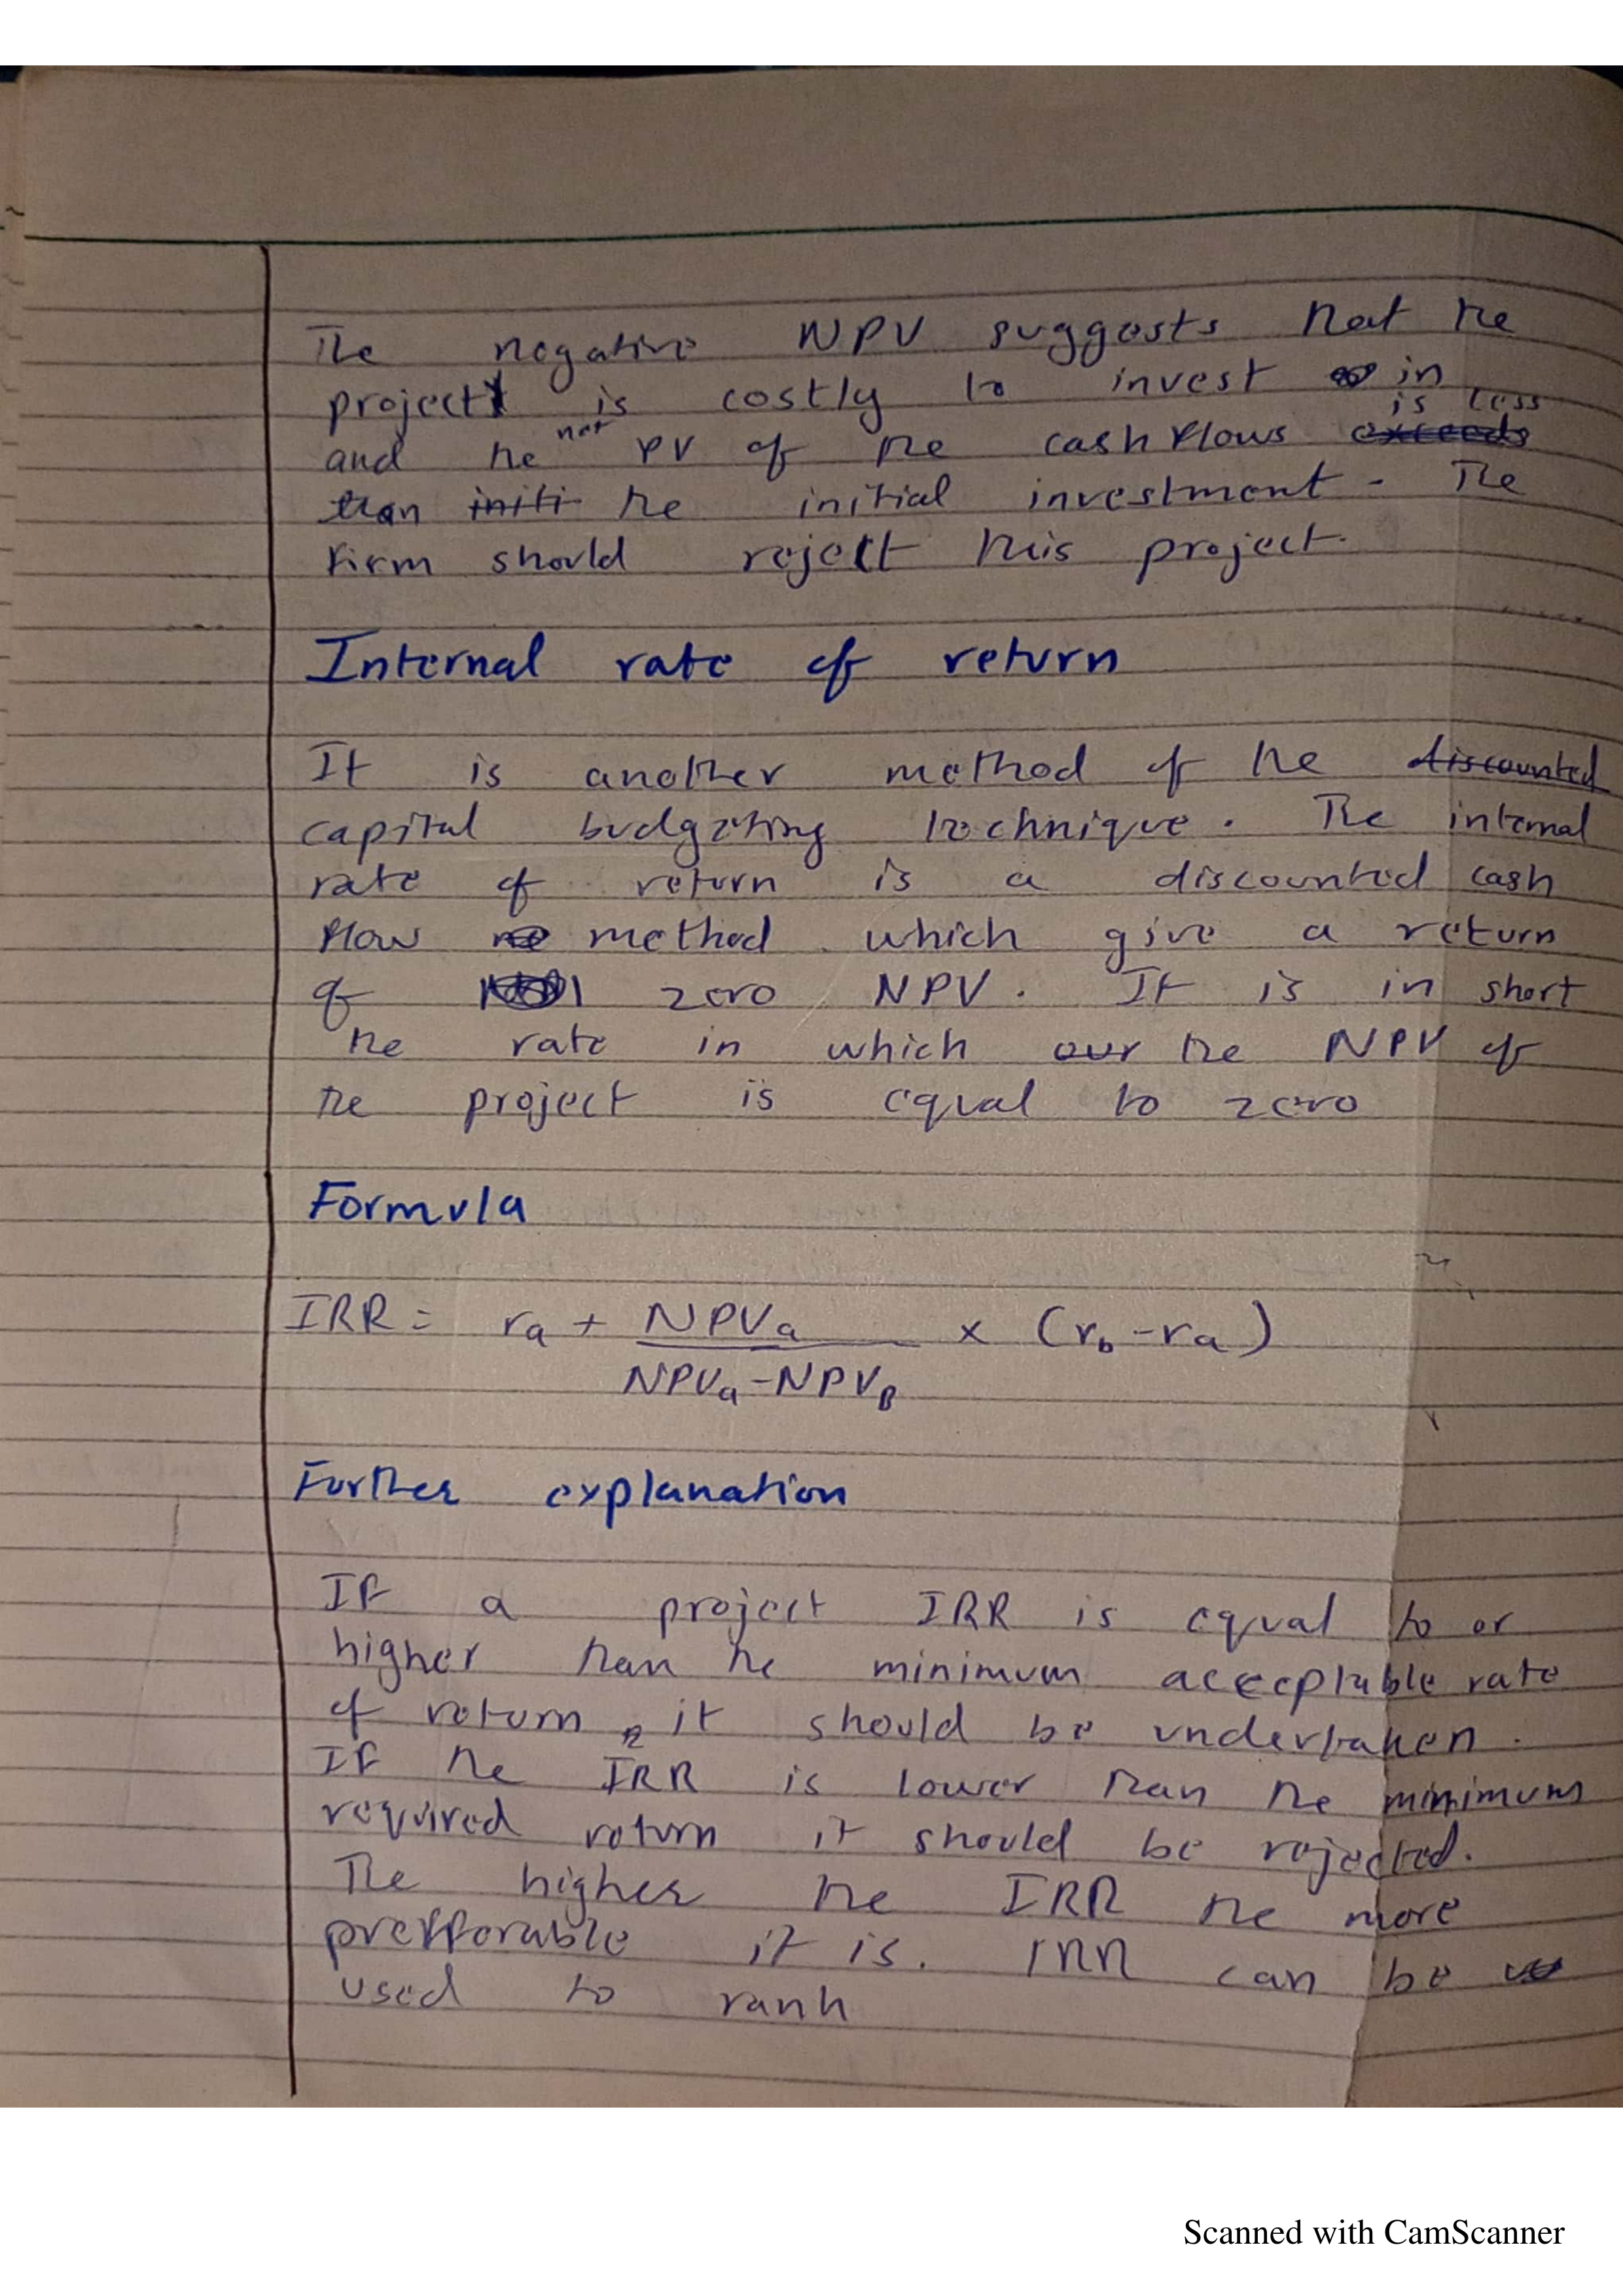 The negative NPV suggests that the
project is costly to invest in
and the net PV of the cash flows exceeds is less
than initi the initial investment. The
firm should reject this project.
Internal rate of return
It is another method of the discounted
capital budgeting technique. The internal
rate of return is a discounted cash
flow method which give a return
of zero NPV. It is in short
the rate in which our the NPV of
the project is equal to zero
Formula
IRR = ra + NPVa / NPVa - NPVB × (rb - ra)
Further explanation
If a project IRR is equal to or
higher than the minimum acceptable rate
of return, it should be undertaken.
If the IRR is lower than the minimum
required return it should be rejected.
The higher the IRR the more
prefforable it is. IRR can be
used to rank
Scanned with CamScanner